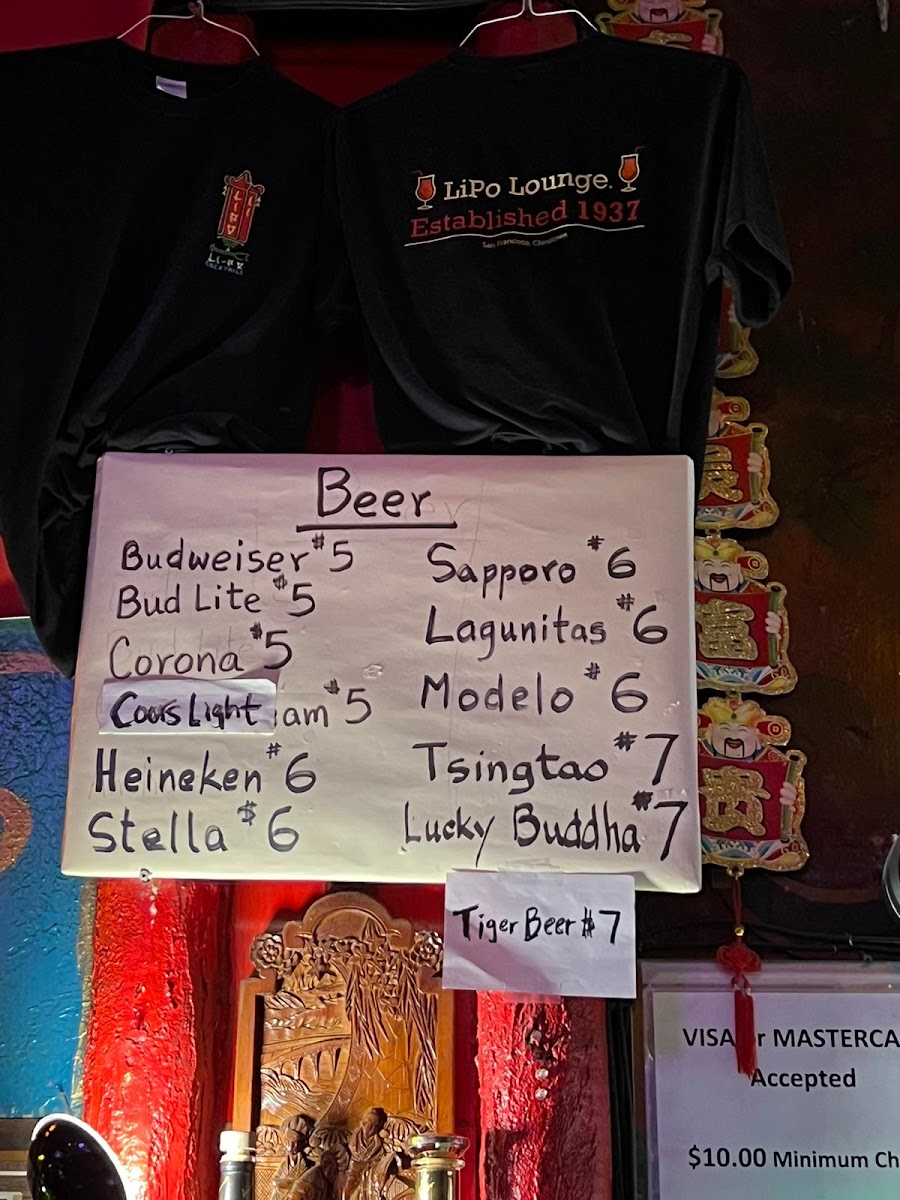 LiPo Lounge.
Established 1937
San Francisco, Chinatown
LIPO
LI-PO
COCKTAILS
Beer
Budweiser $5
Bud Lite $5
Corona $5
Coors Light iam $5
Heineken $6
Stella $6
Sapporo $6
Lagunitas $6
Modelo $6
Tsingtao $7
Lucky Buddha $7
Tiger Beer $7
富
貴
VISA or MASTERCA
Accepted
$10.00 Minimum Ch